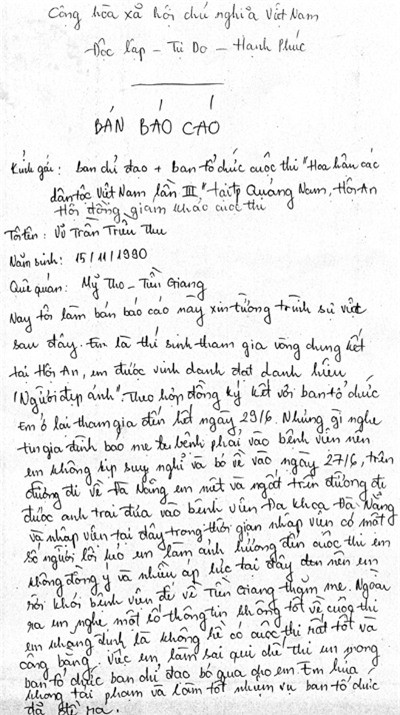 Cộng hòa xã hội chủ nghĩa Việt Nam
Độc lập - Tự Do - Hạnh Phúc
BẢN BÁO CÁO
Kính gởi: ban chỉ đạo + ban tổ chức cuộc thi "Hoa hậu các
dân tộc Việt Nam lần III" tại tp Quảng Nam, Hội An
Hội đồng giám khảo cuộc thi
Tôi tên: Võ Trần Triều Thu
Năm sinh: 15/11/1990
Quê quán: Mỹ Tho - Tiền Giang
Nay tôi làm bản báo cáo này xin tường trình sự việc
sau đây. Em là thí sinh tham gia vòng chung kết
tại Hội An, em được vinh danh đạt danh hiệu
"Người đẹp ảnh". Theo hợp đồng ký kết với ban tổ chức
em ở lại tham gia đến hết ngày 29/6. Nhưng gì nghe
tin gia đình báo mẹ bệnh phải vào bệnh viện nên
em không kịp suy nghỉ và bỏ về vào ngày 27/6, trên
đường đi về Đà Nẵng em mệt và ngất trên đường đi
được anh trai đưa vào bệnh viện Đa khoa Đà Nẵng
và nhập viện tại đây trong thời gian nhập viện có một
số người lôi kéo em làm ảnh hưởng đến cuộc thi em
không đồng ý và nhiều áp lực tại đây nên em
rời khỏi bệnh viện để về Tiền Giang thăm mẹ. Ngoài
ra em nghe một số thông tin không tốt về cuộc thi
em khẳng định là không hề có cuộc thi rất tốt và
công bằng. Việc em làm sai qui chế thi em mong
ban tổ chức ban chỉ đạo bỏ qua cho em. Em hứa
không tái phạm và làm tốt nhiệm vụ ban tổ chức
đã đề ra.